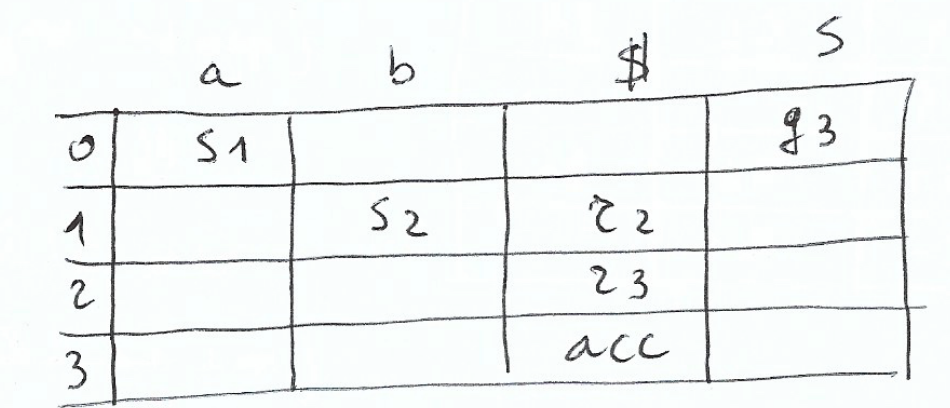 a b $ S
0 s1 g3
1 s2 r2
2 r3
3 acc